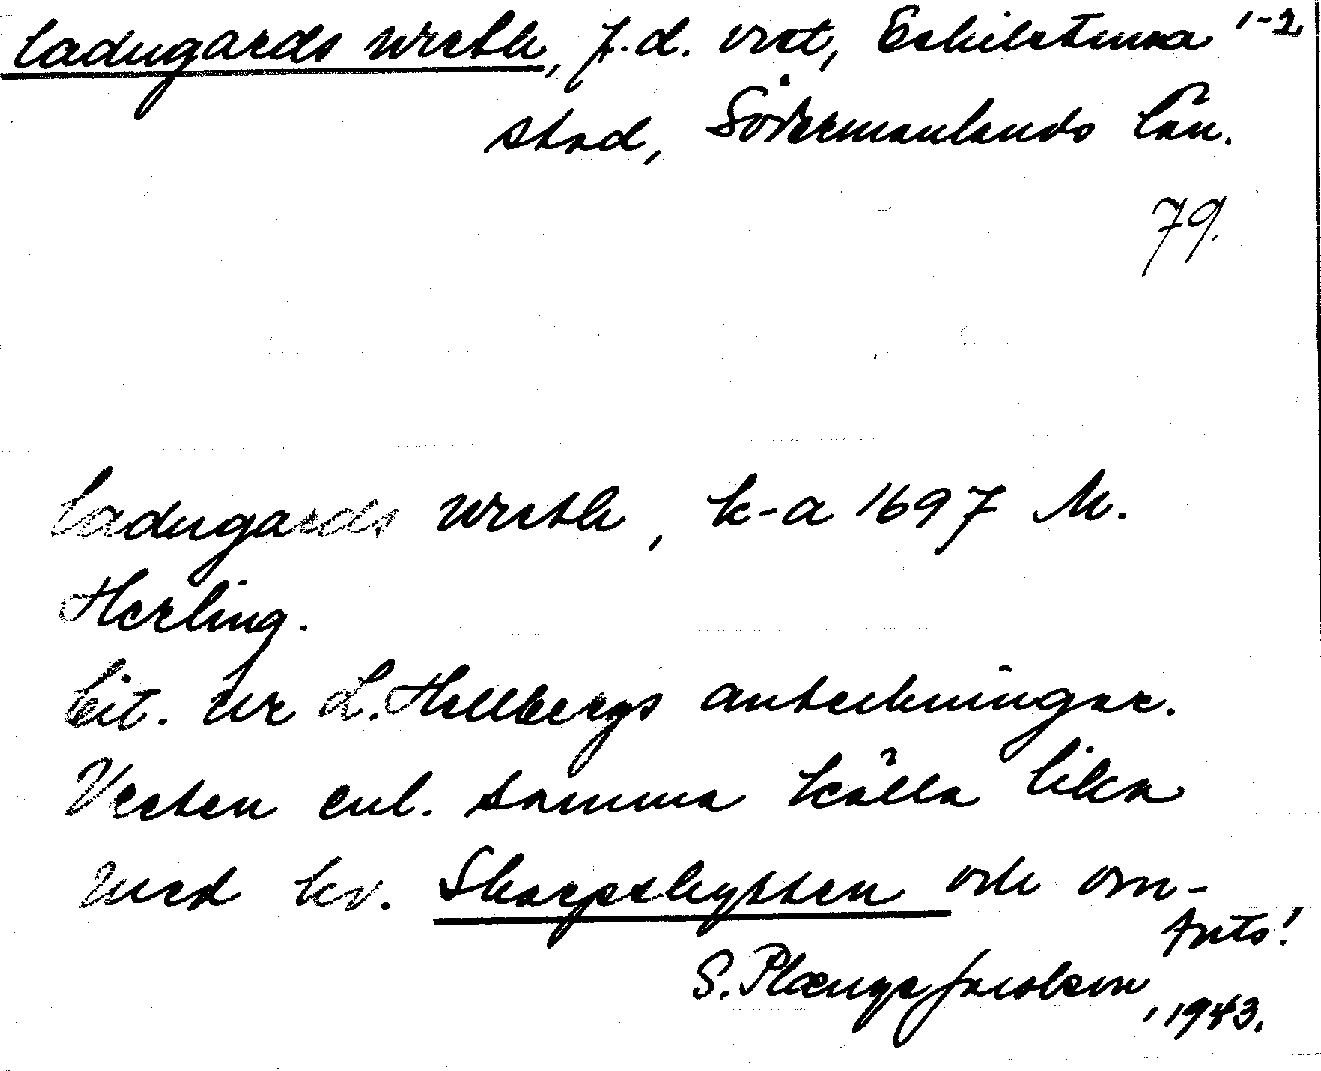 Ladugards wreth, f.d. vret, Eskilstuna 1-2
stad, Södermanlands län.
79.
Ladugards wreth, k-a 1697 M.
Herling.
Cit. ur L. Hellbergs anteckningar.
Vreten enl. samma källa lika
med kv. Skarpskytten och om-
forts!
S. Plænge Jacobson, 1943.